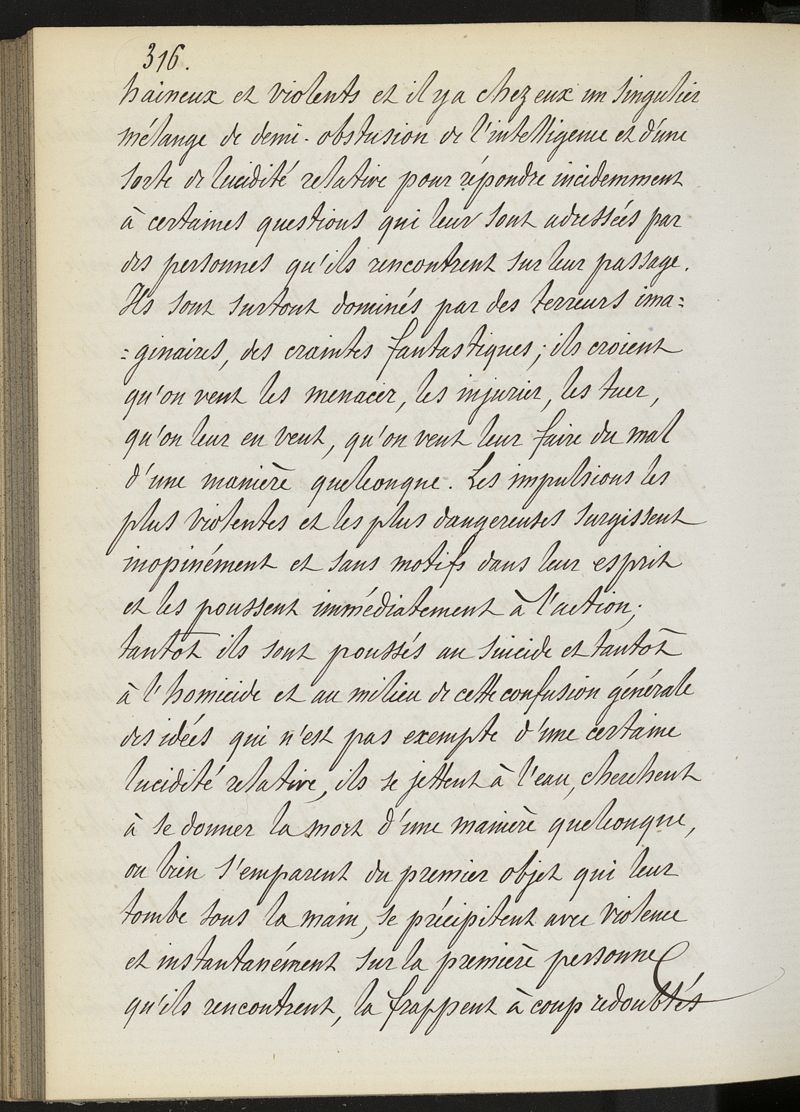 316.
haineux et violents et il y a chez eux un singulier
mélange de demi-obstusion de l'intelligence et d'une
sorte de lucidité relative pour répondre incidemment
à certaines questions qui leur sont adressées par
des personnes qu'ils rencontrent sur leur passage.
Ils sont surtout dominés par des terreurs ima=
=ginaires, des craintes fantastiques; ils croient
qu'on veut les menacer, les injurier, les tuer,
qu'on leur en veut, qu'on veut leur faire du mal
d'une manière quelconque. Les impulsions les
plus violentes et les plus dangereuses surgissent
inopinément et sans motifs dans leur esprit
et les poussent immédiatement à l'action;
tantôt ils sont poussés au suicide et tantôt
à l'homicide et au milieu de cette confusion générale
des idées qui n'est pas exempte d'une certaine
lucidité relative, ils se jettent à l'eau, cherchent
à se donner la mort d'une manière quelconque,
ou bien s'emparent du premier objet qui leur
tombe sous la main, se précipitent avec violence
et instantanément sur la première personne
qu'ils rencontrent, la frappent à coup redoublés